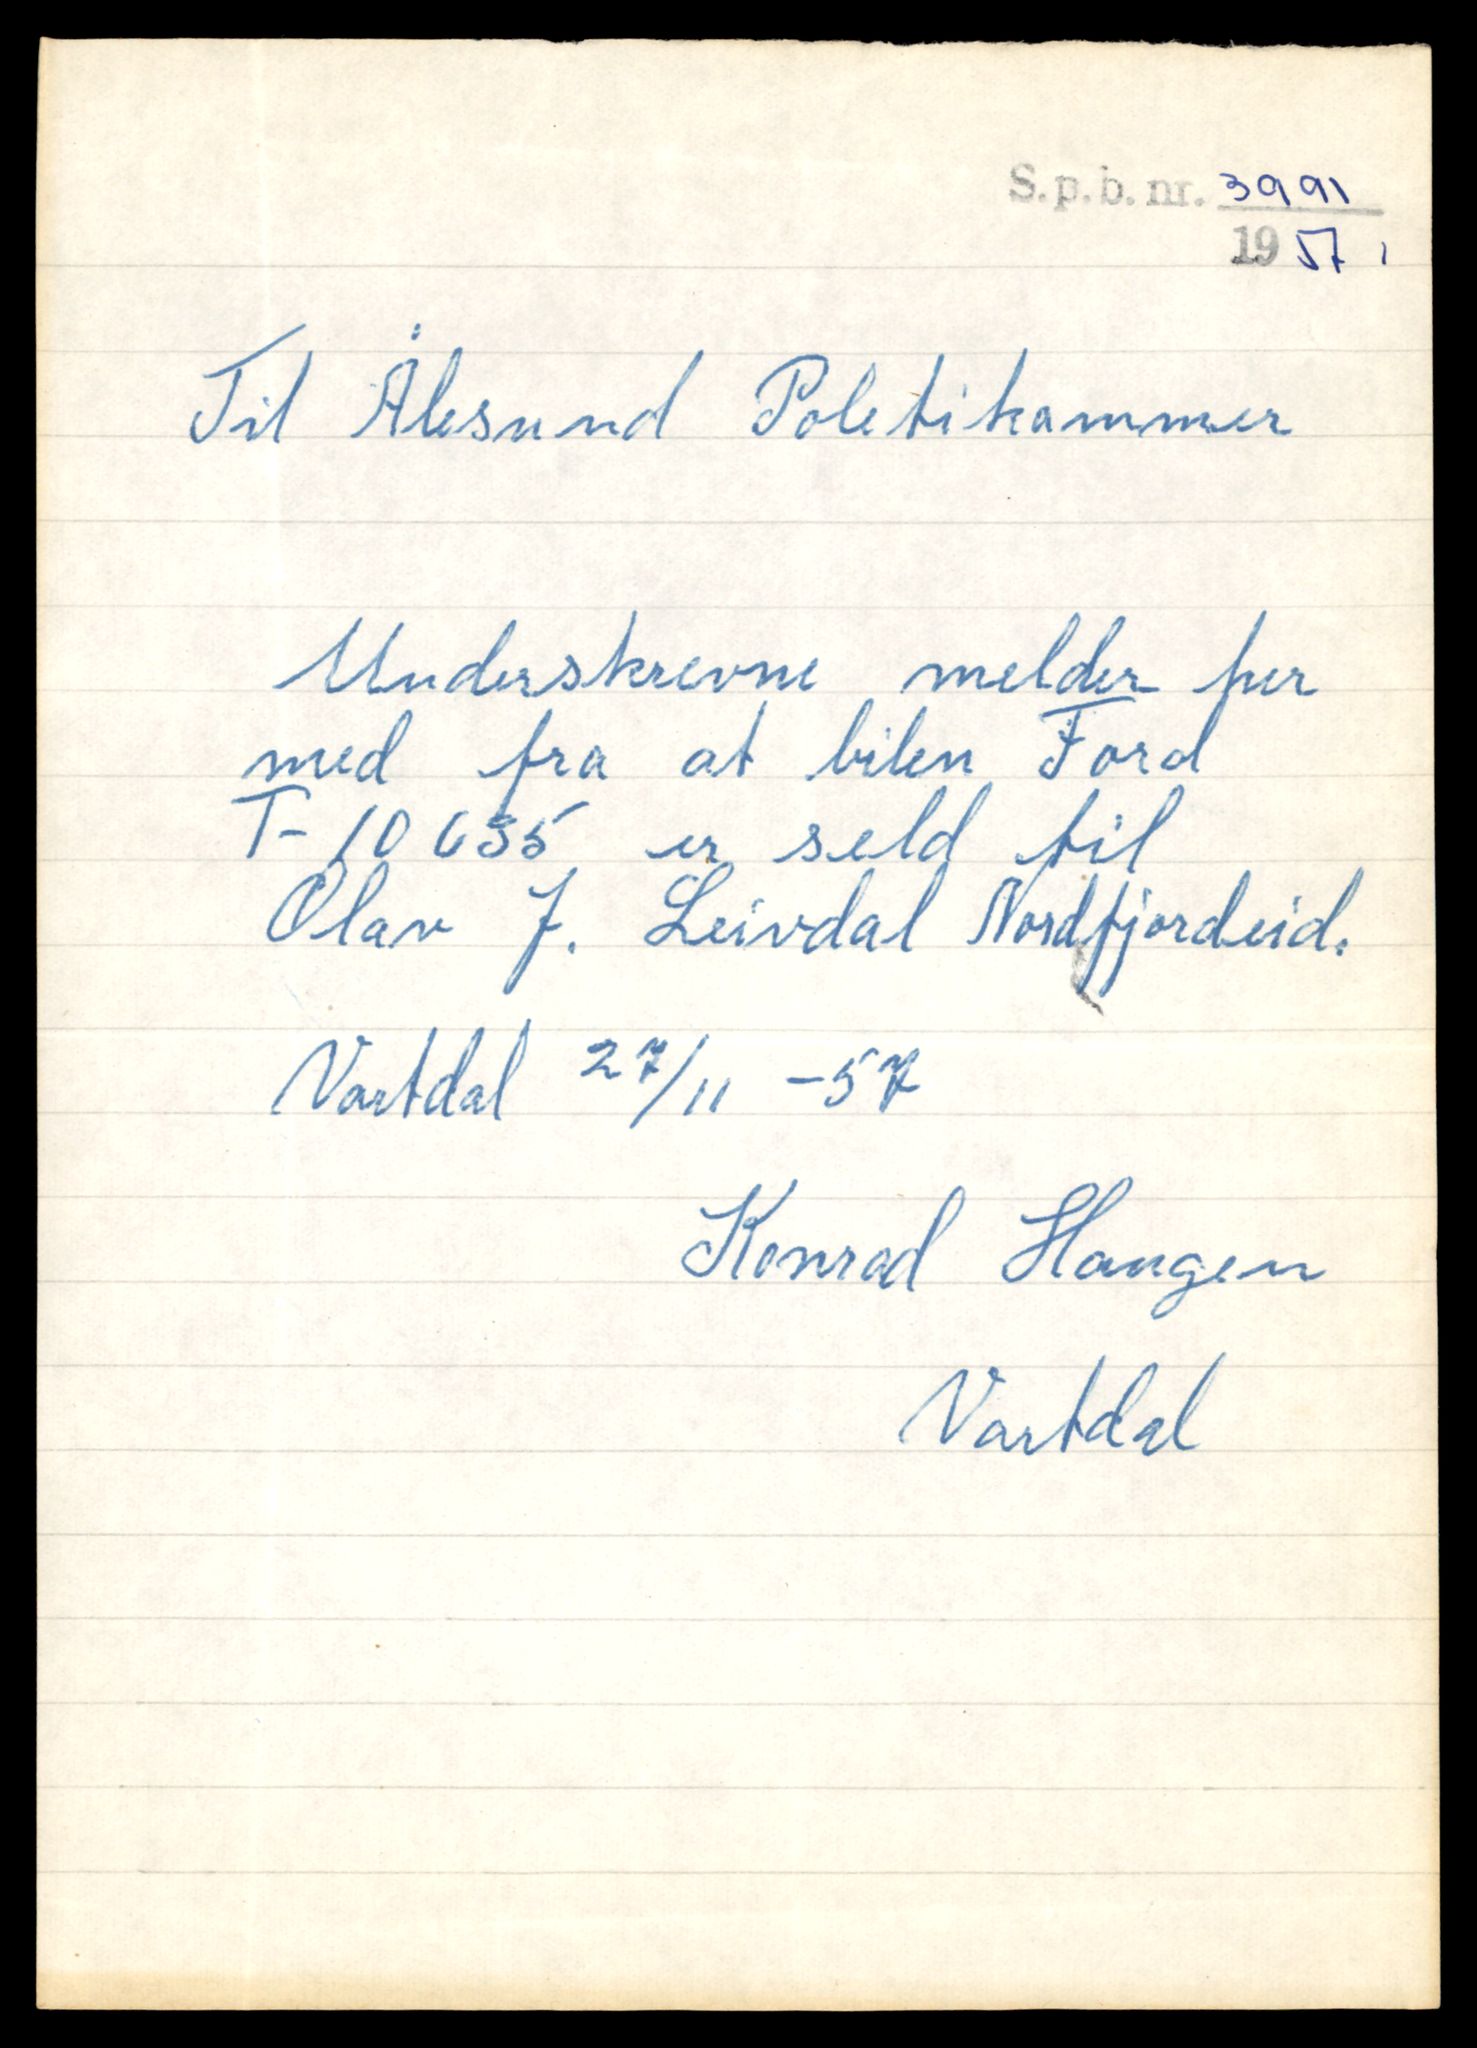 S.p.b. nr. 3991
19 57
Til Ålesund Poletikammer
Underskrevne melder her
med fra at bilen Ford
T-10635 er seld til
Olav J. Leivdal Nordfjordeid.
Vartdal 27/11 -57
Konrad Haugen
Vartdal